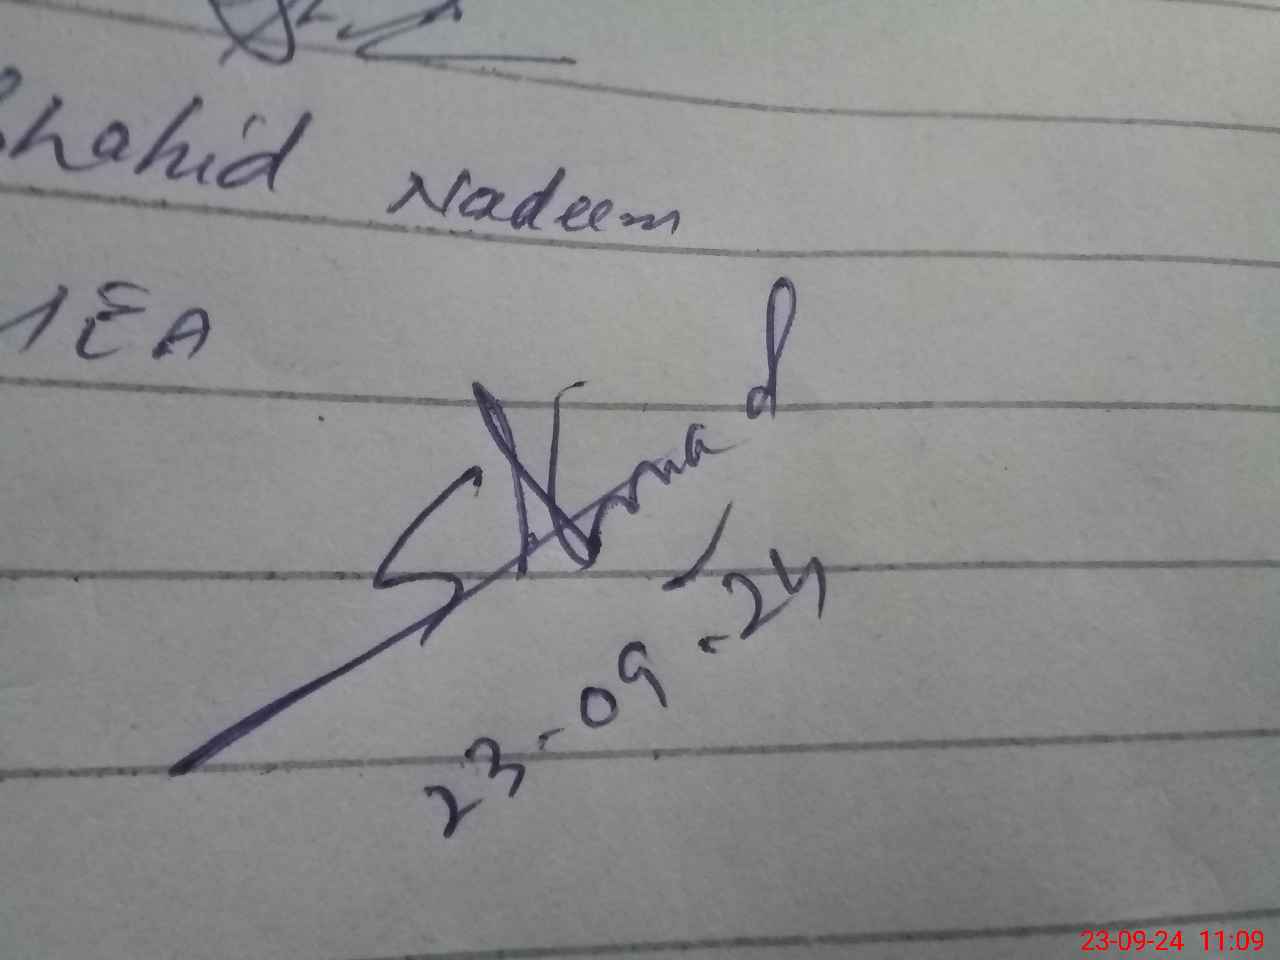 Shahid Nadeem
1EA
23-09-24
23-09-24 11:09